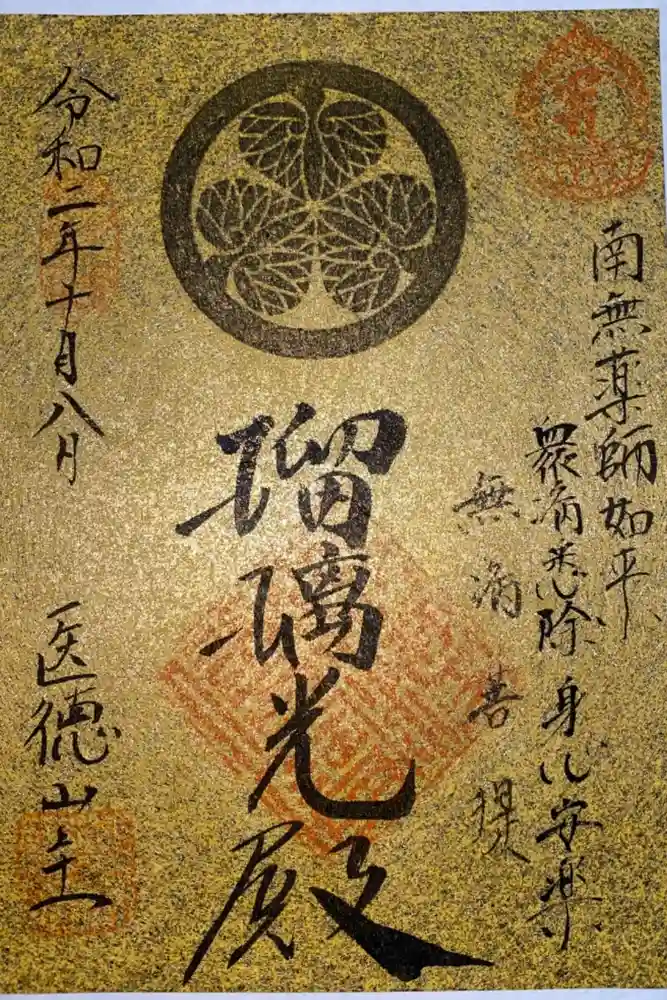 南無薬師如来
衆病悉除 身心安楽
無病
瑠璃光殿
令和二年十月八日
医徳山主